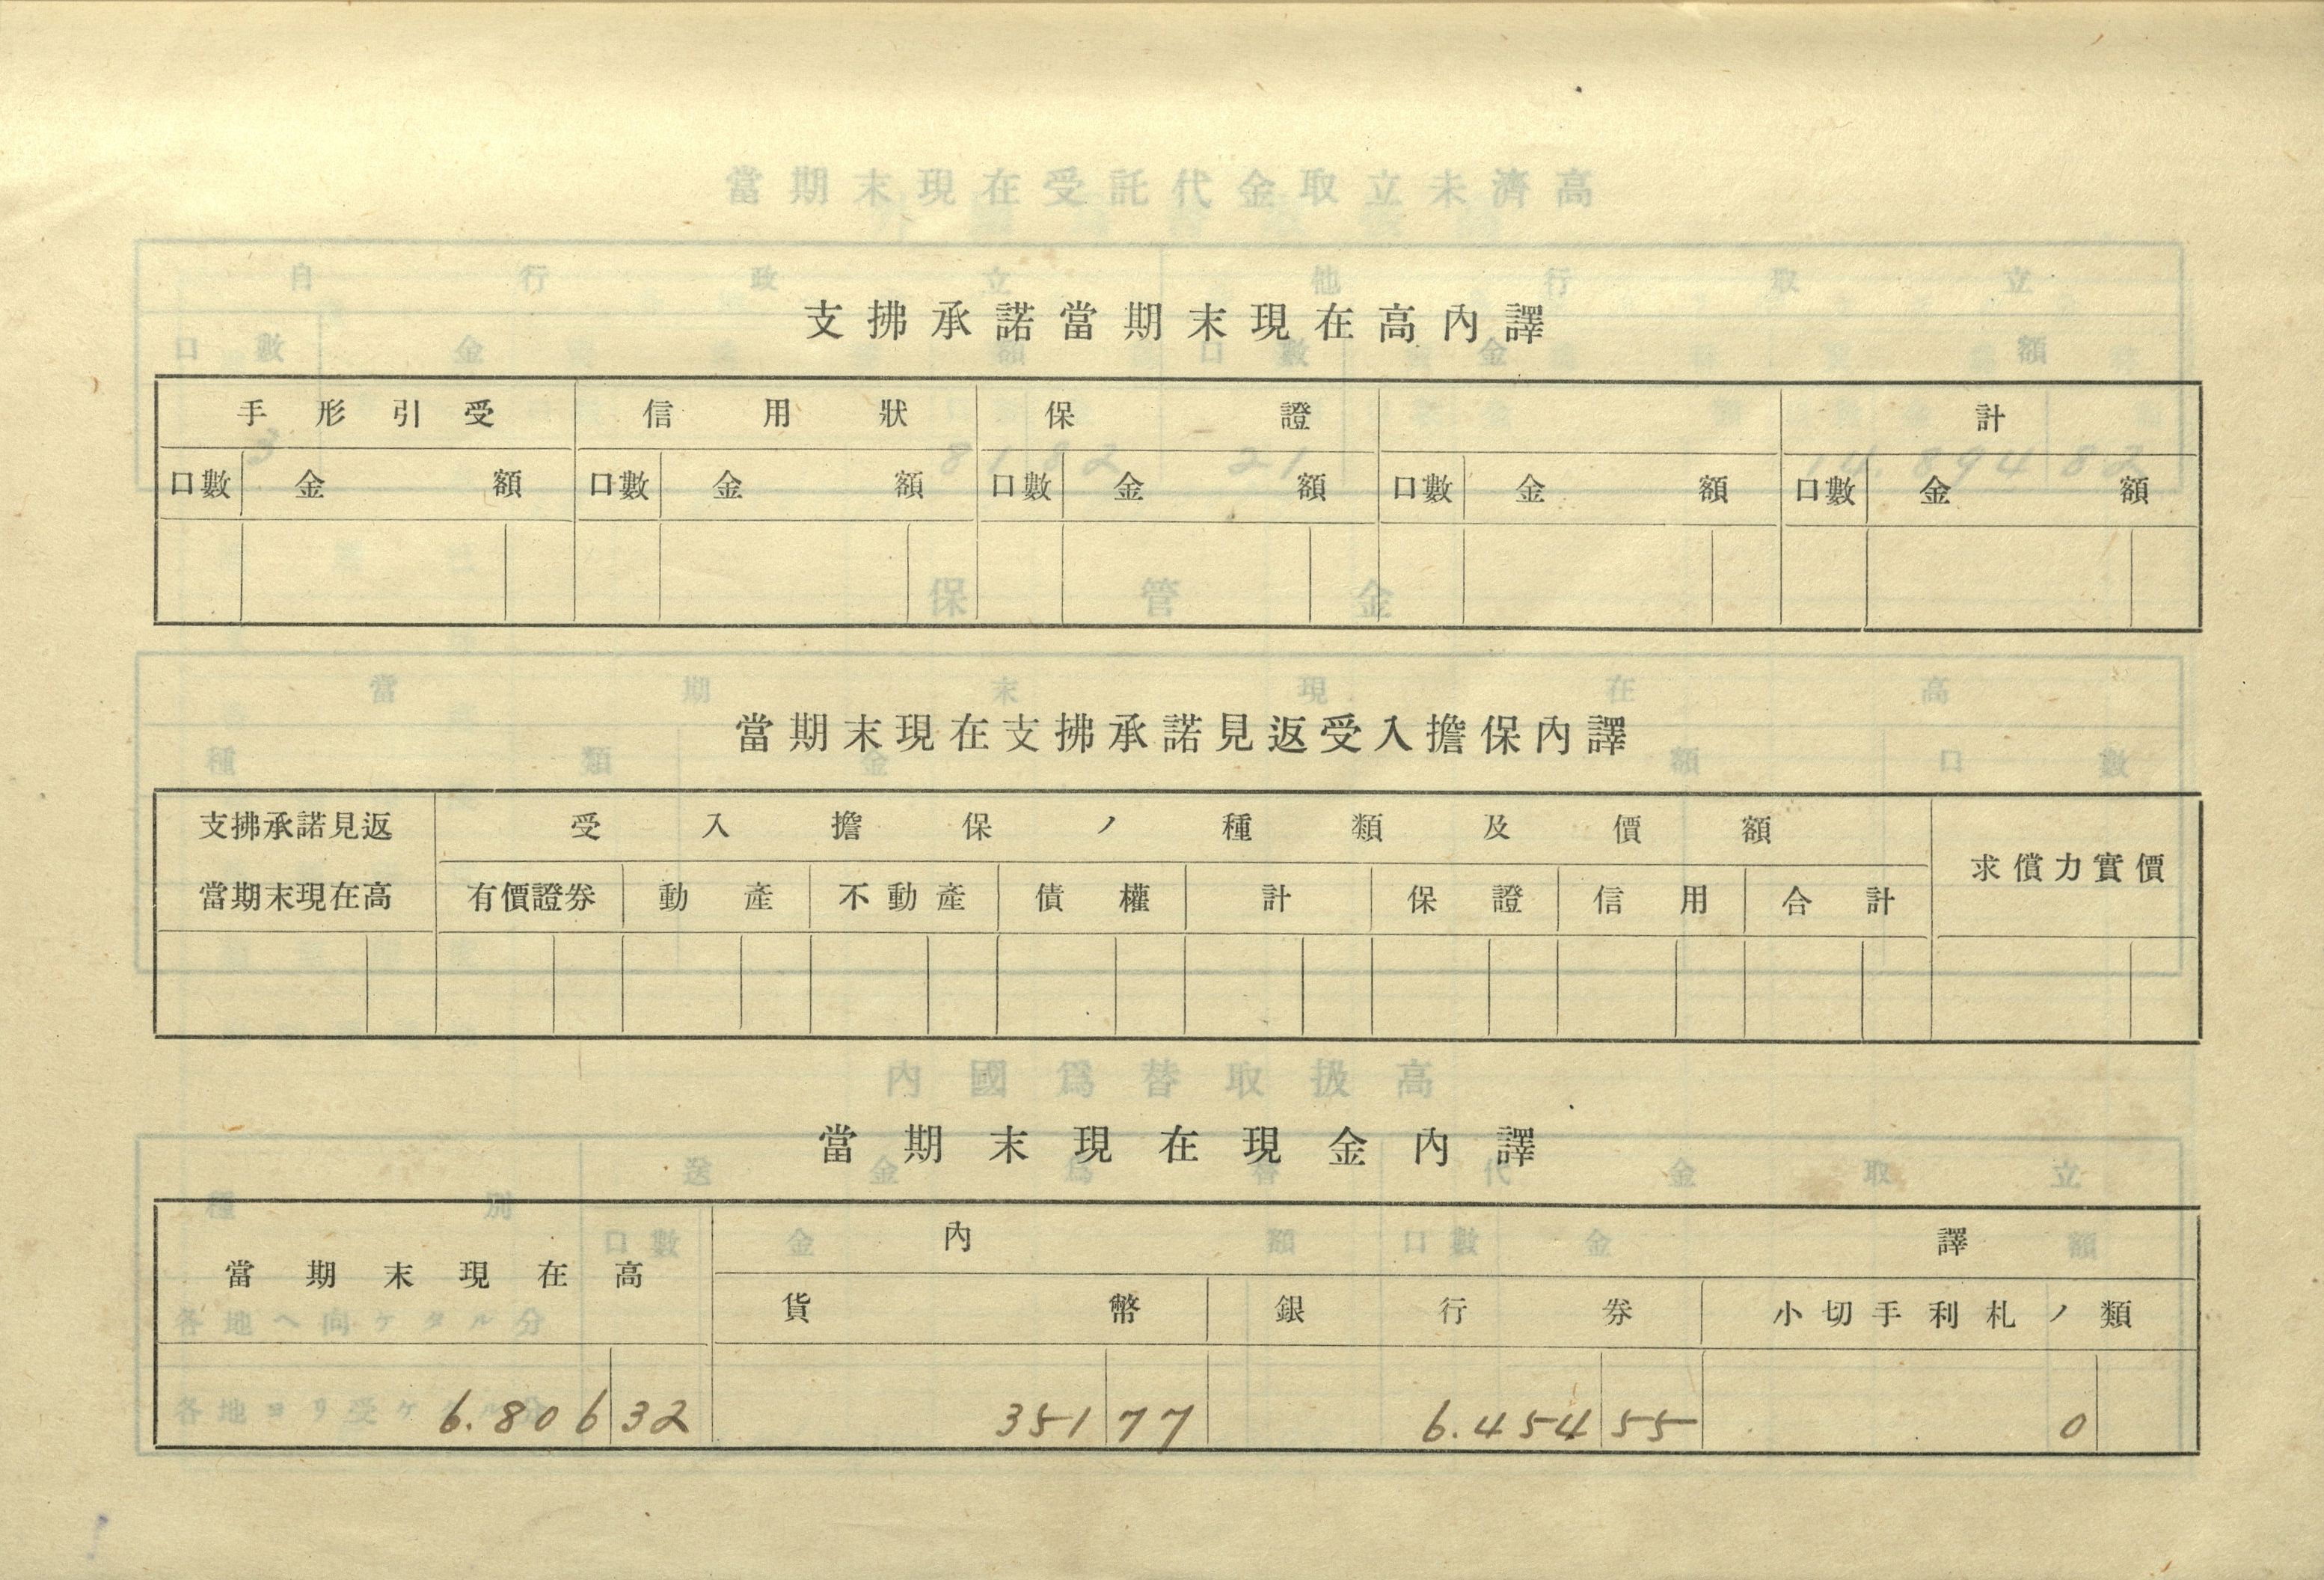 支拂承諾當期末現在高內譯
手形引受 信用狀 保證 計
口數 金額 口數 金額 口數 金額 口數 金額 口數 金額
當期末現在支拂承諾見返受入擔保內譯
支拂承諾見返 受入擔保ノ種類及價額 求償力實價
當期末現在高 有價證券 動產 不動產 債權 計 保證 信用 合計
當期末現在現金內譯
當期末現在高 內譯
貨幣 銀行券 小切手利札ノ類
6.806 32 351 77 6.454 55 0